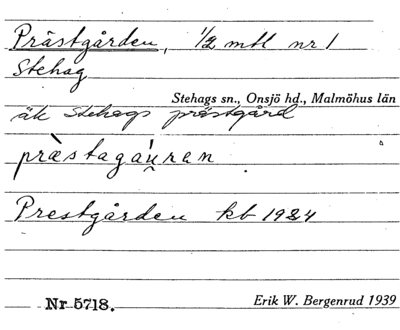 Prästgården, 1/2 mtl nr 1
Stehag
Stehags sn., Onsjö hd., Malmöhus län
äk Stehags prästgård
Prestgården kb 1924
Nr 5718.
Erik W. Bergenrud 1939